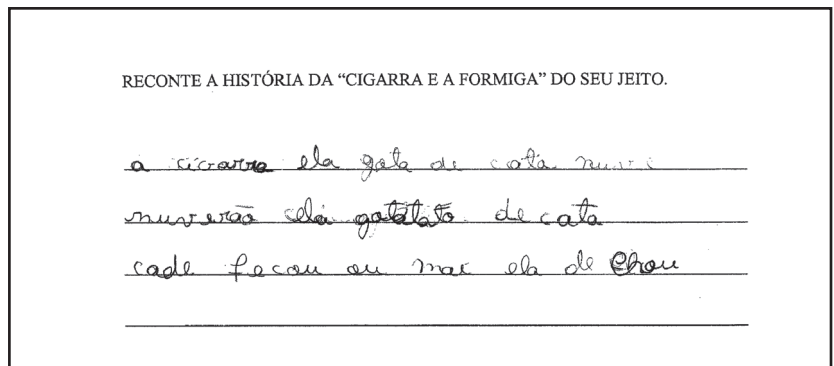 RECONTE A HISTÓRIA DA “CIGARRA E A FORMIGA” DO SEU JEITO.
a cicrarra ela gota de cata nuve
nuverão ela gotatato de cata
cade fecou ou mai ela de chou